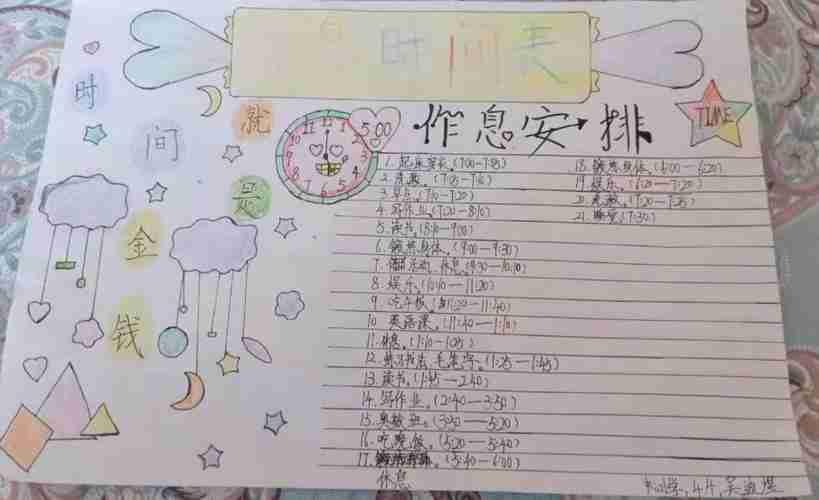 时间表
时间就是金钱
5:00
TIME
作息安排
1. 起床穿衣。(7:00-7:05)
2. 洗漱。(7:05-7:10)
3. 早点。(7:10-7:20)
4. 写作业。(7:20-8:10)
5. 读书。(8:10-9:00)
6. 锻炼身体。(9:00-9:30)
7. 活动 休息。(9:30-10:10)
8. 娱乐。(10:10-11:20)
9. 吃午饭。(11:20-11:40)
10 英语课。(11:40-1:10)
11. 休息。(1:10-1:25)
12. 练习书法,毛笔字。(1:25-1:45)
13. 读书。(1:45-2:40)
14. 写作业。(2:40-3:50)
15. 奥数班。(3:50-5:20)
16. 吃晚饭。(5:20-5:40)
17. (5:40-6:00)
休息
18. 锻炼身体。(6:00-6:20)
19. 娱乐。(6:20-7:20)
20. 洗漱。(7:20-7:25)
21. 睡觉(7:30)